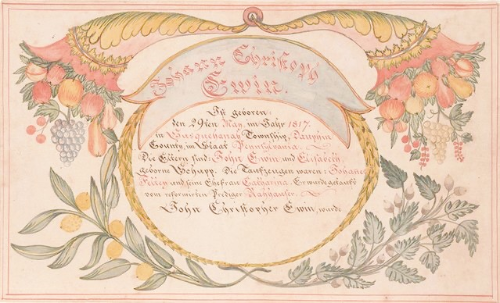 Johann Christoph
Ewin.
Ist geboren
den 29ten May, im Jahr 1817.
in Susquehanna Township, Dauphin
County, im Staat Pennsylvania.
Die Eltern sind: John Ewin und Elisabeth,
geborne Die Taufzeugen waren: Johann
und seine Ehefrau Catharina. Er wurde getauft
vom reformirten Prediger
John Christopher Ewin, wurde